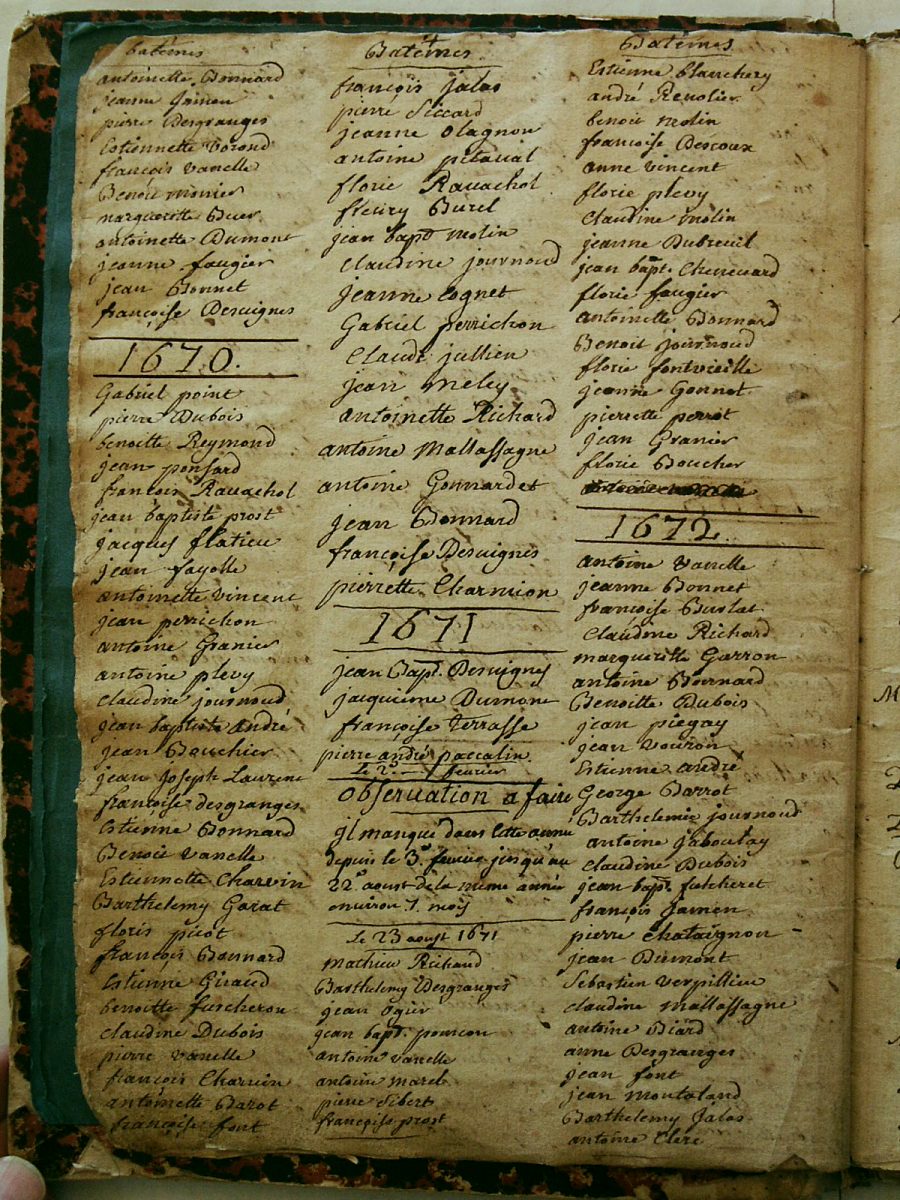 batêmes
antoinette Bonnard
jeanne jamen
pierre Desgranges
Estiennette
françois vanelle
Benoit monier
margueritte
antoinette Dumont
jeanne faugier
jean Bonnet
françoise Desvignes
1670.
Gabriel point
pierre Dubois
benoitte Reymond
jean ponsard
françois Ravachol
jean baptiste prost
jacques flatieu
jean fayolle
antoinette vincent
jean perrichon
antoine Granier
antoine plevy
claudine journoud
jean baptiste andré
jean Bouchier
jean joseph Laurent
françoise desgranges
Estienne Bonnard
Benoit vanelle
Estiennette Charvin
Barthelemy Garat
floris picot
françois Bonnard
Estienne Giraud
benoitte furcheron
claudine Dubois
pierre vanelle
françois Charvin
antoinette Barot
françoise font
Batêmes
françois jalas
pierre Siccard
jeanne Olagnon
antoine pitaval
florie Ravachol
fleury Burel
jean bapt. molin
Claudine journoud
jeanne Cognet
Gabriel perrichon
Claude jullien
jean mely
antoinette Richard
antoine Mallassagne
antoine Gonnardet
jean Bonnard
françoise Desvignes
pierrette Charmion
1671
jean Bapt. Desvignes
jacquieme Dumont
françoise terrasse
pierre andré paccalin
Le 2e fevrier
observation a faire
jl manque dans cette année
depuis le 3e fevrier jusqu'au
22e aoust de la même année
environ 7 mois
Le 23 aoust 1671
mathieu Richaud
Barthelemy Desgranges
jean Ogier
jean bapt. poncon
antoine vanelle
antoine marel
pierre Sibert
françoise prost
Batêmes
Estienne blanchery
andré Revolier
benoit molin
françoise Descoux
anne vincent
florie plevy
Claudine molin
jeanne Dubreuil
jean bapt. Chenevard
florie faugier
antoinette Bonnard
Benoit journoud
florie fontvieille
jeanne Gonnet
pierrette perrot
jean Granier
florie Boucher
1672.
antoine vanelle
jeanne Bonnet
françoise Burlat
Claudine Richard
marguerite Garron
antoine Bonnard
Benoitte Dubois
jean piegay
jean vouron
Estienne andré
George Barrot
Barthelemie journoud
antoine jaboulay
claudine Dubois
jean bapt. fulcheret
françois jamen
pierre Chataignon
jean Dumont
Sebastien verpillieu
claudine mallassagne
antoine Biard
anne Desgranges
jean font
jean montaland
Barthelemy jalas
antoine Clere